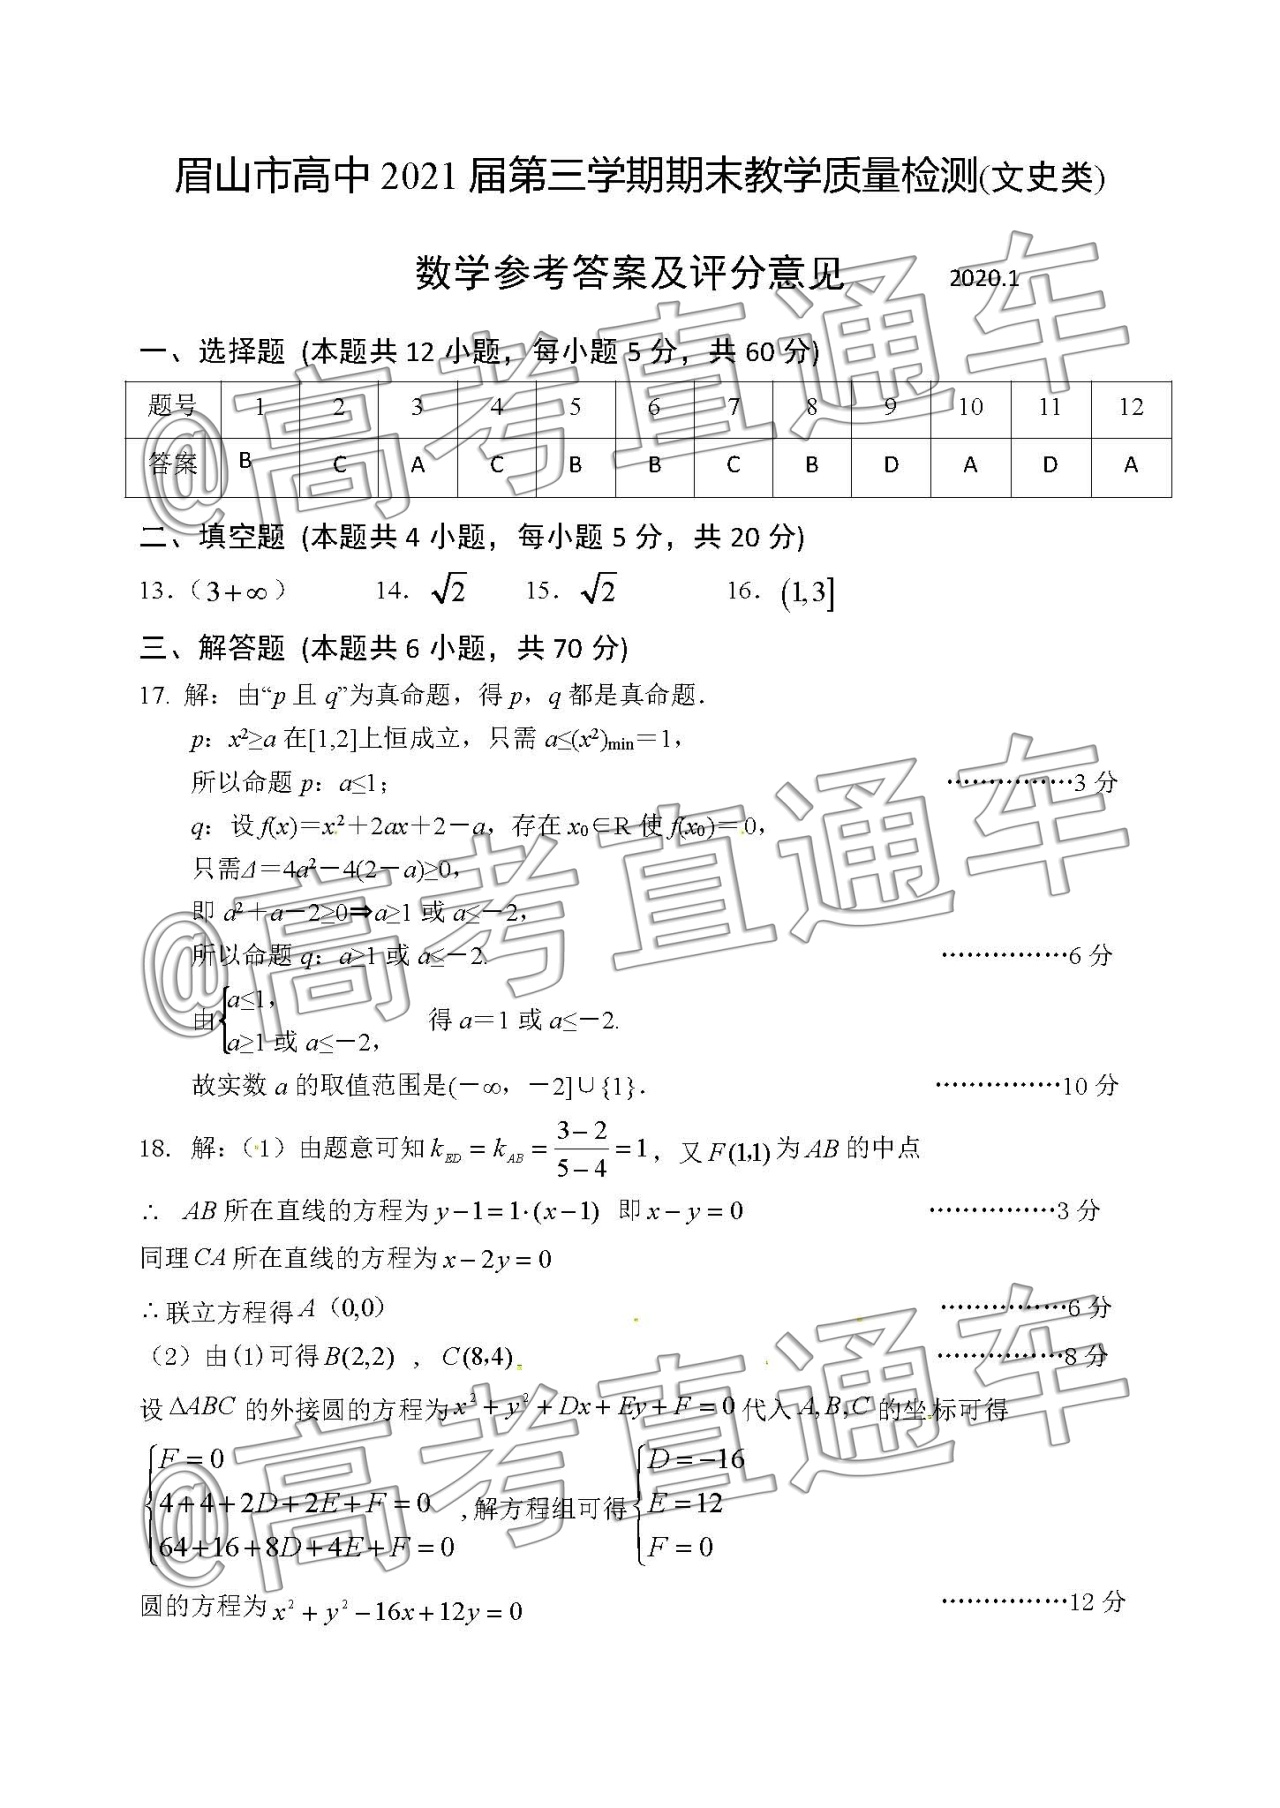 眉山市高中 2021 届第三学期期末教学质量检测(文史类)
数学参考答案及评分意见 2020.1
一、选择题 (本题共 12 小题，每小题 5 分，共 60 分)
题号 1 2 3 4 5 6 7 8 9 10 11 12
答案 B C A C B B C B D A D A
二、填空题 (本题共 4 小题，每小题 5 分，共 20 分)
13.（3+∞） 14. √2 15. √2 16. (1,3]
三、解答题 (本题共 6 小题，共 70 分)
17. 解：由“p 且 q”为真命题，得 p，q 都是真命题.
p：x²≥a 在[1,2]上恒成立，只需 a≤(x²)min＝1，
所以命题 p：a≤1； ……………3 分
q：设 f(x)=x²＋2ax＋2－a，存在 x₀∈R 使 f(x₀)＝0，
只需Δ＝4a²－4(2－a)≥0，
即 a²＋a－2≥0⇒a≥1 或 a≤－2，
所以命题 q：a≥1 或 a≤－2. ……………6 分
由{a≤1， a≥1 或 a≤－2， 得 a＝1 或 a≤－2.
故实数 a 的取值范围是(－∞，－2]∪{1}. ……………10 分
18. 解：（1）由题意可知 k_ED = k_AB = (3−2)/(5−4) = 1，又 F(1,1) 为 AB 的中点
∴ AB 所在直线的方程为 y−1=1·(x−1) 即 x−y=0 ……………3 分
同理 CA 所在直线的方程为 x−2y=0
∴联立方程得 A（0,0） ……………6 分
（2）由(1)可得 B(2,2) , C(8,4) ……………8 分
设 ΔABC 的外接圆的方程为 x²+y²+Dx+Ey+F=0 代入 A,B,C 的坐标可得
{F=0 4+4+2D+2E+F=0 64+16+8D+4E+F=0 ,解方程组可得 {D=−16 E=12 F=0
圆的方程为 x²+y²−16x+12y=0 ……………12 分
@高考直通车
@高考直通车
@高考直通车